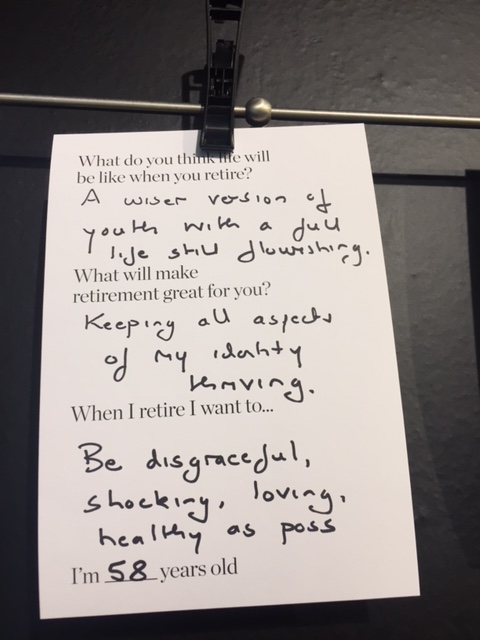 What do you think life will
be like when you retire?
A wiser version of
youth with a full
life still flourishing.
What will make
retirement great for you?
Keeping all aspects
of my identity
thriving.
When I retire I want to...
Be disgraceful,
shocking, loving,
healthy as poss
I'm 58 years old